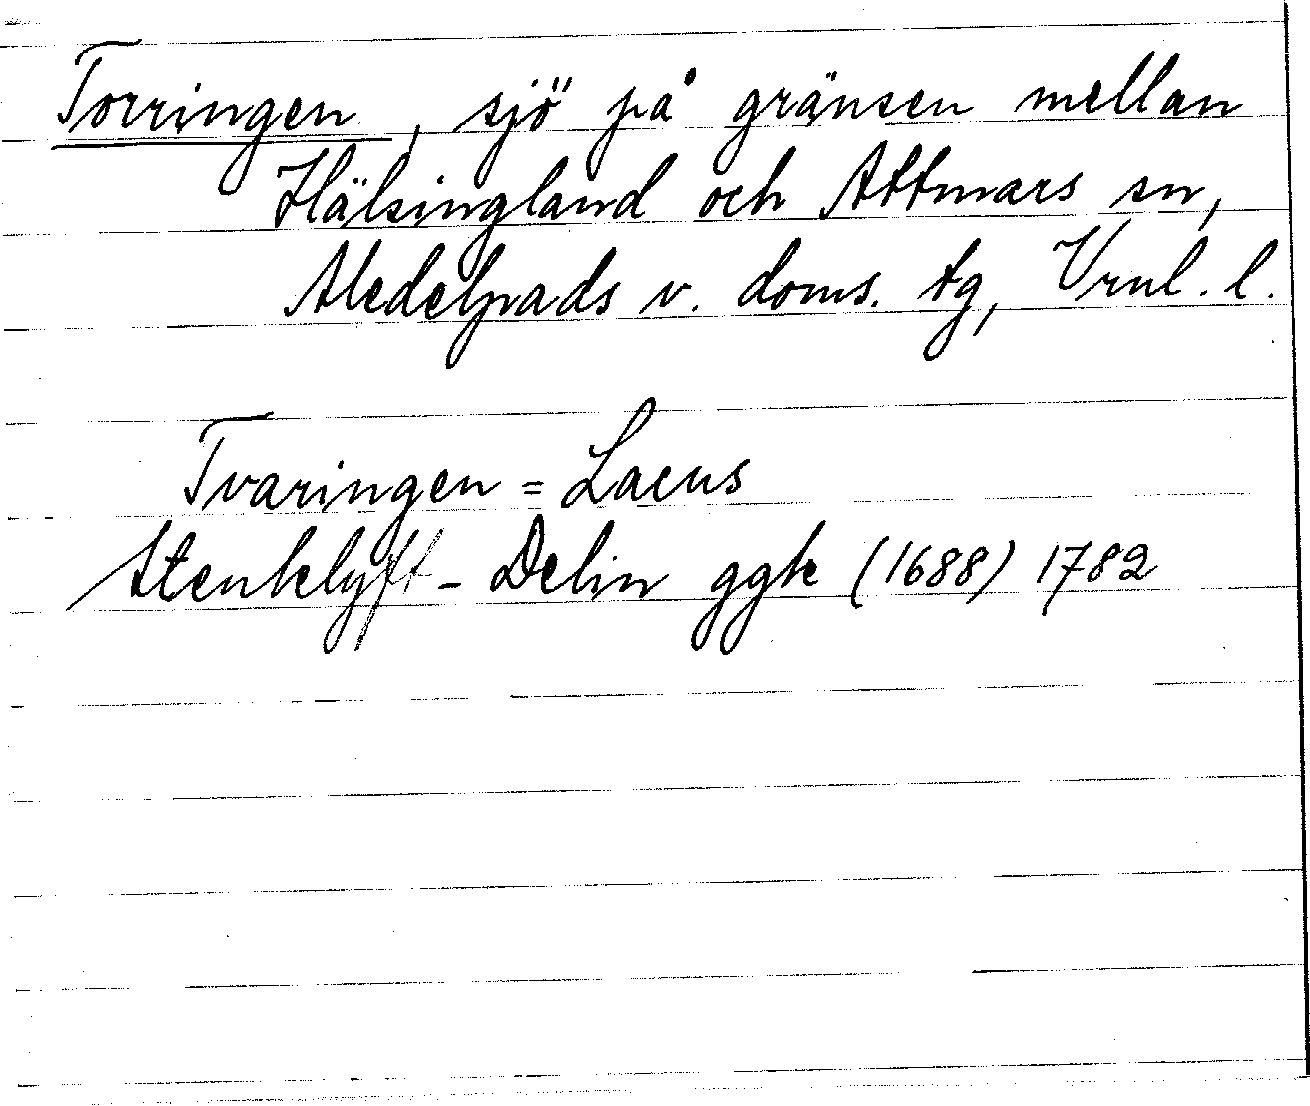 Torringen, sjö på gränsen mellan
Hälsingland och Attmars sn,
Medelpads v. doms. tg, Vrnl. l.
Tvaringen = Lacus
Stenklyft - Delin ggk (1688) 1782